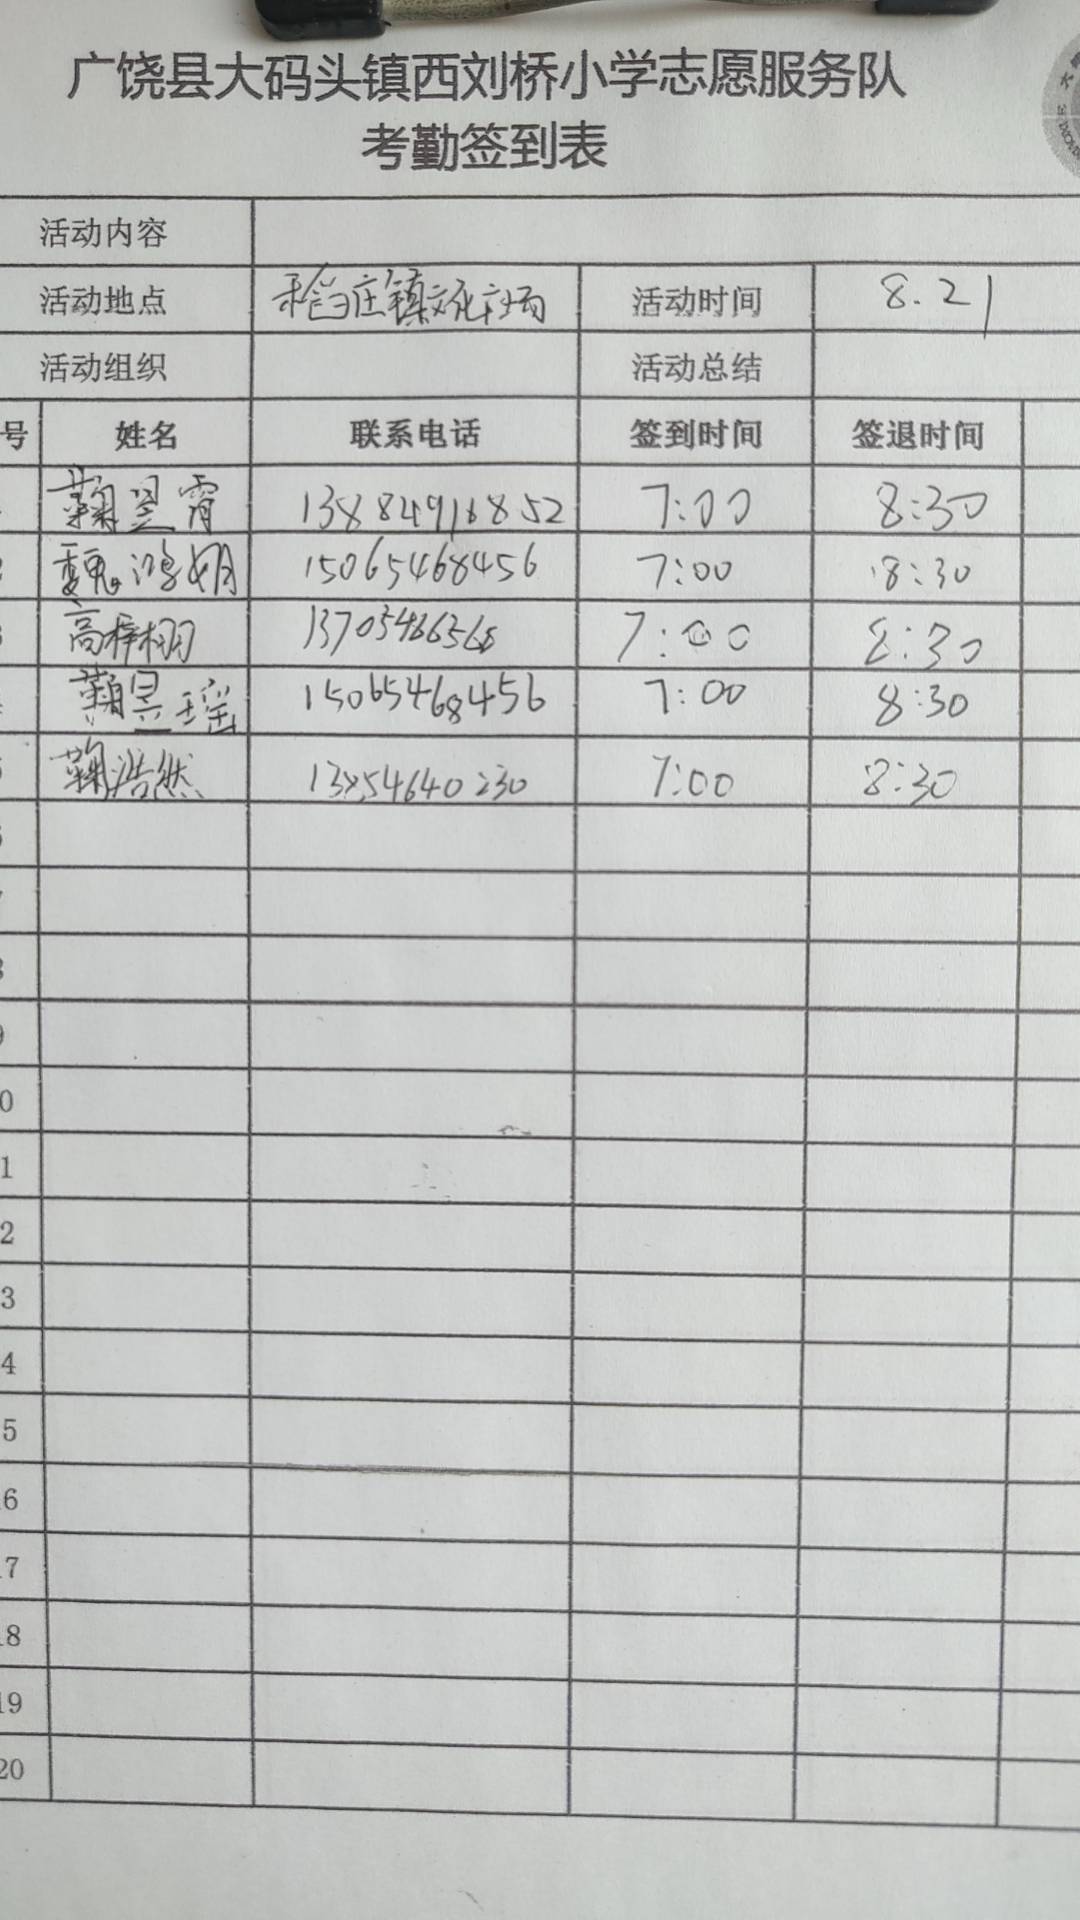 广饶县大码头镇西刘桥小学志愿服务队
考勤签到表
活动内容
活动地点 稻庄镇文化广场 活动时间 8.21
活动组织 活动总结
号 姓名 联系电话 签到时间 签退时间
鞠昱霄 13884916852 7:00 8:30
魏鸿娟 15065468456 7:00 8:30
高梓栩 7:00 8:30
鞠昱瑶 15065468456 7:00 8:30
鞠浩然 13854640230 7:00 8:30
0
1
2
3
4
5
6
17
18
19
20